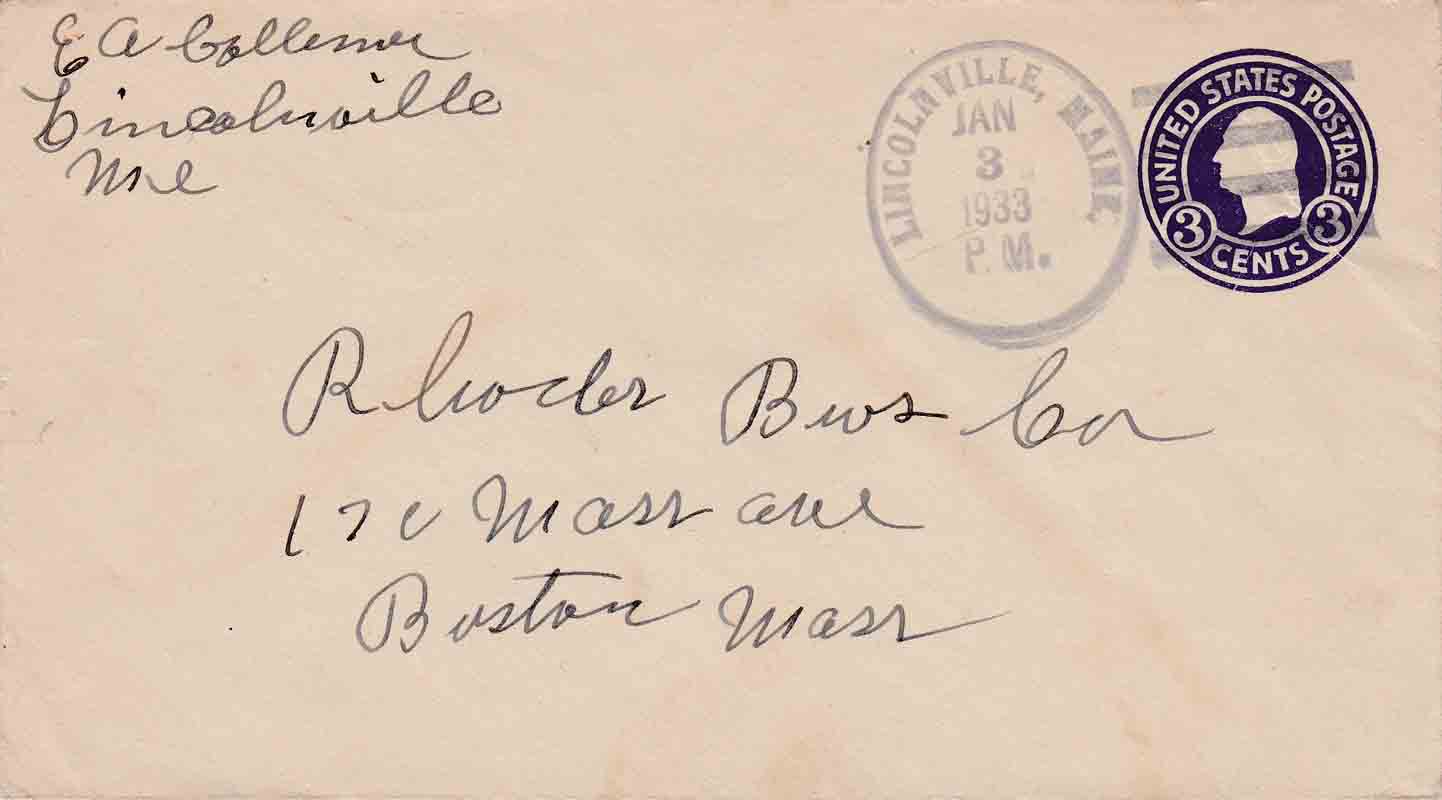 E A Collemer
Lincolnville
Me
LINCOLNVILLE, MAINE.
JAN
3
1933
P.M.
UNITED STATES POSTAGE
3 CENTS 3
Rhodes Bros Co
170 Mass ave
Boston Mass